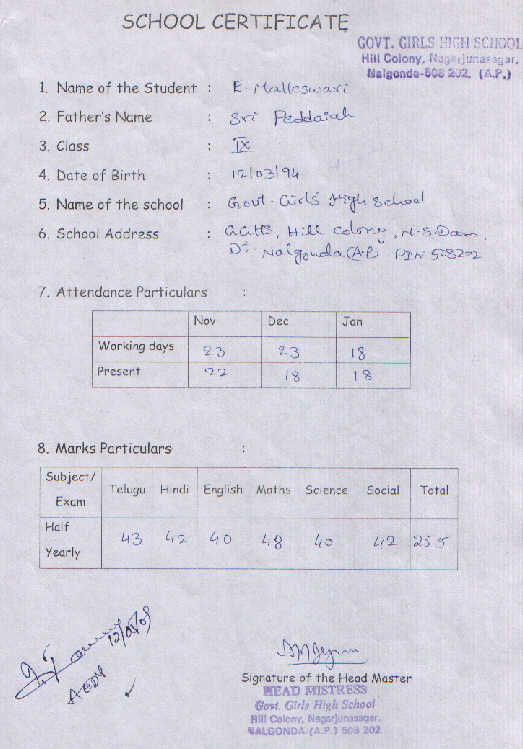 SCHOOL CERTIFICATE
GOVT. GIRLS HIGH SCHOOL
Hill Colony, Nagarjunasagar,
Nalgonda-508 202. (A.P.)
1. Name of the Student : E. Malleswari
2. Father's Name : Sri Peddaiah
3. Class : IX
4. Date of Birth : 12/03/94
5. Name of the school : Govt. Girls High School
6. School Address : GGHS, Hill colony, N.S.Dam.
Dt Nalgonda (A.P) PIN 508202
7. Attendance Particulars :
Nov Dec Jan
Working days 23 23 18
Present 22 18 18
8. Marks Particulars :
Subject/ Exam Telugu Hindi English Maths Science Social Total
Half Yearly 43 42 40 48 40 42 255
Signature of the Head Master
HEAD MISTRESS
Govt. Girls High School
Hill Colony, Nagarjunasagar,
NALGONDA (A.P.) 508 202